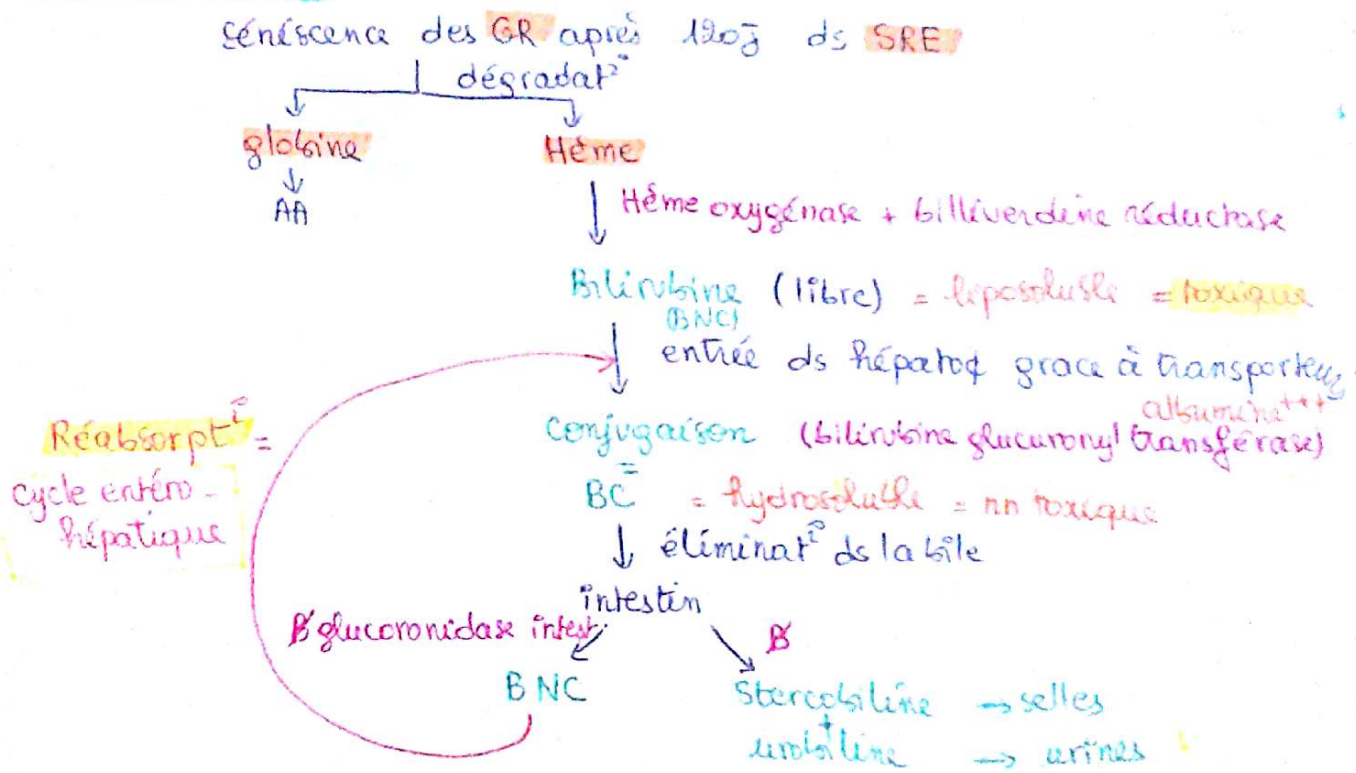 sénéscence des GR après 120j ds SRE
dégradat°
globine Hème
AA
Hème oxygénase + billiverdine réductase
Bilirubine (libre) = liposoluble = toxique
(BNC)
entrée ds hépatoȼ grace à transporteurs
albumine+++
Réabsorpt° =
cycle entéro-
hépatique
conjugaison (bilirubine glucuronyl transférase)
=
BC = hydrosoluble = nn toxique
éliminat° ds la bile
intestin
β glucoronidase intest.
BNC
Stercobiline → selles
+
urobiline → urines